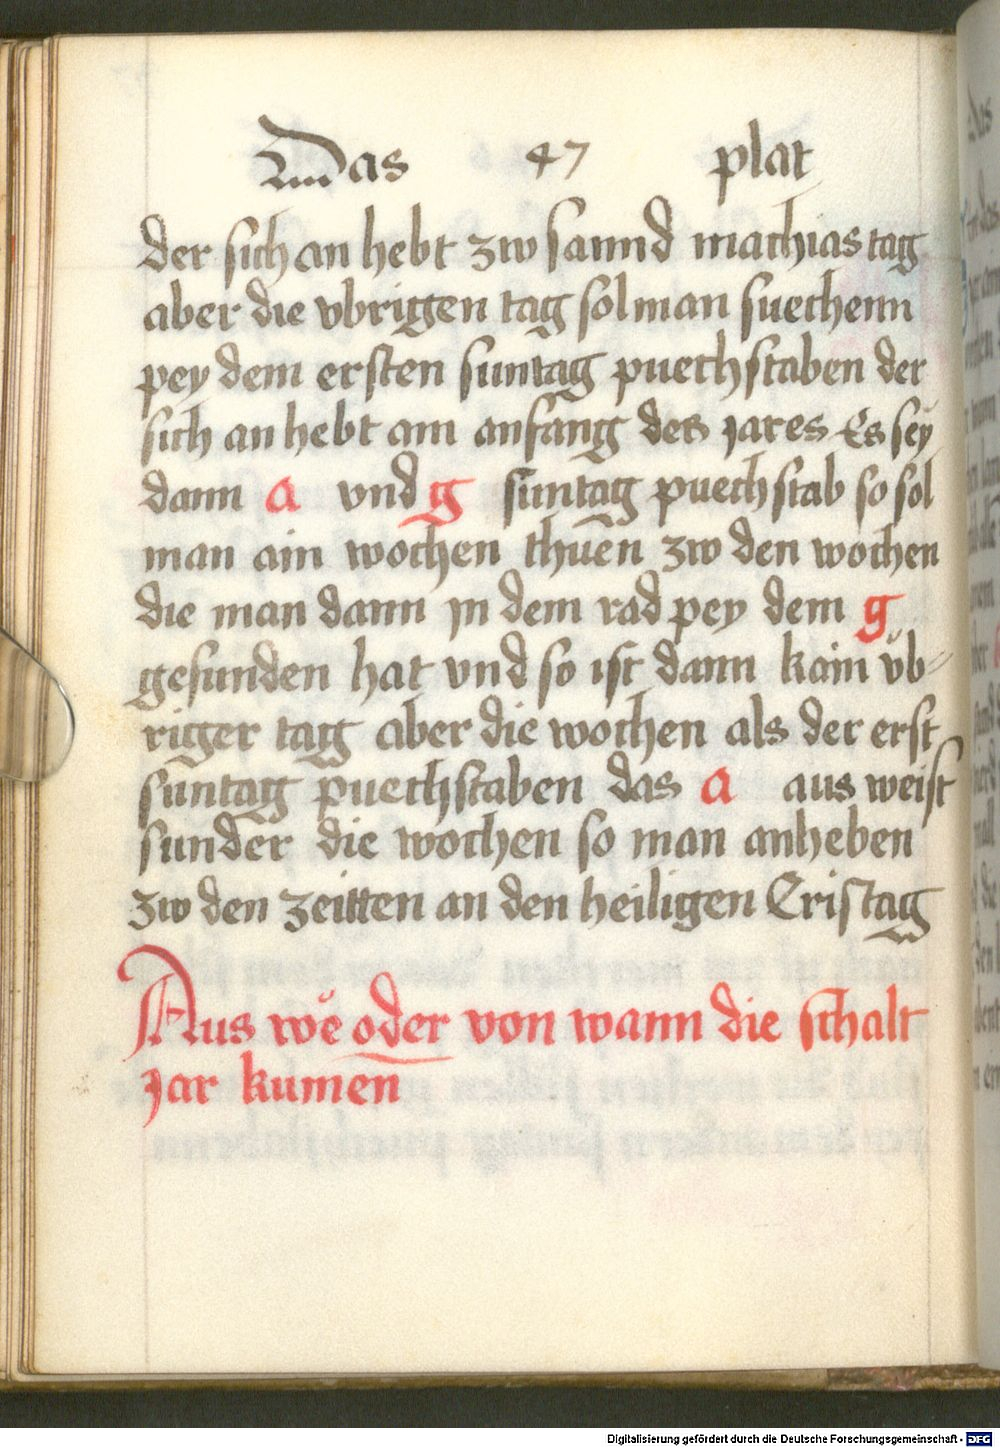 Das 47 plat
der sich an hebt zw sannd mathias tag
aber die vbrigen tag sol man suechenn
pey dem ersten suntag puechstaben der
sich an hebt am anfang des jares Es sey
dann a vnd g suntag puechstab so sol
man ain wochen thuen zw den wochen
die man dann jn dem rad pey dem g
gefunden hat vnd so ist dann kain vb-
riger tag aber die wochen als der erst
suntag puechstaben das a aus weist
sunder die wochen so man anheben
zw den zeitten an den heiligen Cristag
Aus we oder von wann die schalt
jar kumen
Digitalisierung gefördert durch die Deutsche Forschungsgemeinschaft - DFG